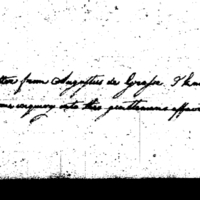 from Augustus de Grasse. I ha
enquiry into this gentlemans affair